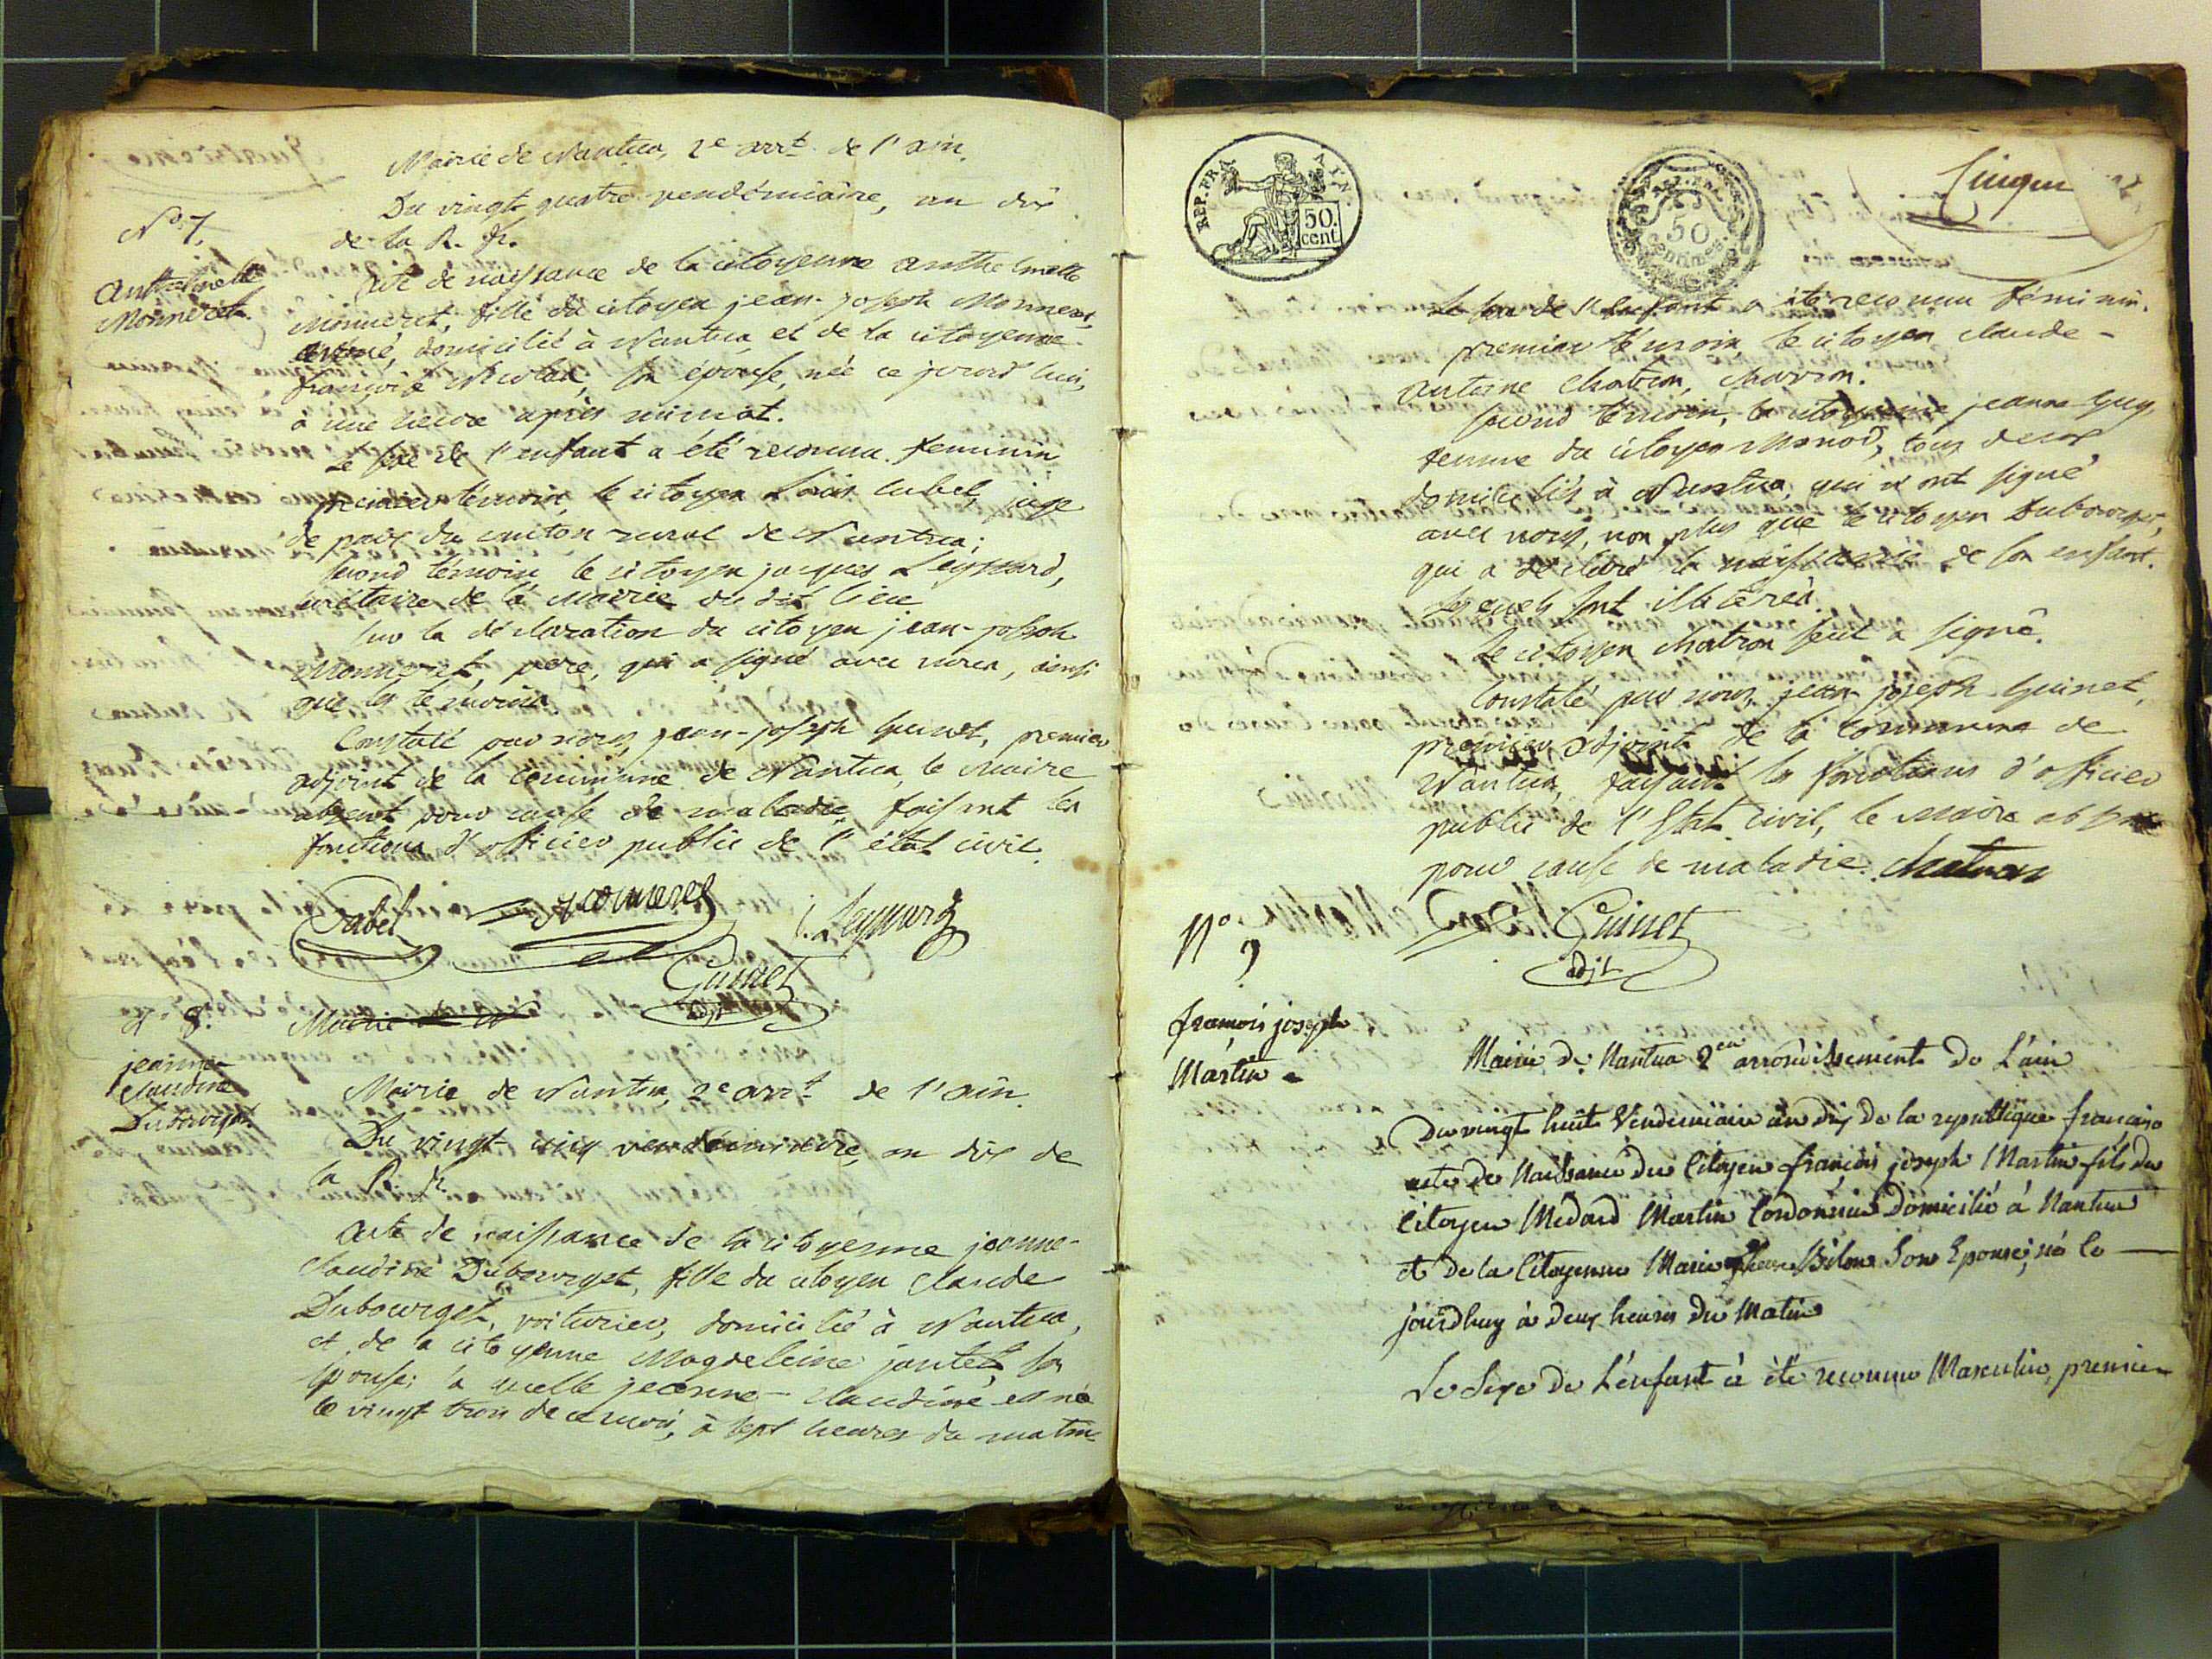 Mairie de Nantua, 2e arrt. de l'ain.
Du vingt quatre vendémiaire, an dix
de la R. fr.
No. 7.
Anthelmette
Monneret.
Acte de naissance de la citoyenne anthelmette
Monneret, fille du citoyen jean-joseph Monneret,
avoué, domicilié à Nantua, et de la citoyenne
françoise Nicolet, son épouse, née ce jourd'hui,
à une heure après minuit.
Le sexe de l'enfant a été reconnu feminin
premier témoin, le citoyen Louis Cabel, juge
de paix du canton rural de Nantua;
second témoin le citoyen jacques Leyssard,
secrétaire de la Mairie du dit lieu.
Sur la déclaration du citoyen jean-joseph
Monneret, père, qui a signé avec nous, ainsi
que les témoins.
Constaté par nous, jean-joseph Guinet, premier
adjoint de la Commune de Nantua, le Maire
absent pour cause de maladie, faisant les
fonctions d'officier public de l'état civil.
Cabel Monneret Leyssard
Guinet
adjt
N. 8.
Mairie de N
jeanne-
Claudine
Dubourget
Mairie de Nantua, 2e arrt. de l'ain.
Du vingt cinq vendémiaire, an dix de
la R. fr.
Acte de naissance de la citoyenne jeanne-
Claudine Dubourget, fille du citoyen Claude
Dubourget, voiturier, domicilié à Nantua,
et de la citoyenne Magdeleine jantet, son
épouse; la quelle jeanne-Claudine est née
le vingt trois de ce mois, à sept heures du matin.
REP. FRA. AYN.
50.
cent.
50
Centimes.
Cinqu
Le sexe de l'enfant a été reconnu féminin.
premier témoin, le citoyen Claude-
Antoine Chatron, charron.
Second témoin, la citoyenne jeanne Guy,
femme du citoyen Monod, tous deux
domiciliés à Nantua, qui n'ont signé
avec nous, non plus que le citoyen Dubourget,
qui a déclaré la naissance de son enfant.
Lesquels sont illitérés.
Le citoyen Chatron seul a signé.
Constaté par nous, jean-joseph Guinet,
premier adjoint de la Commune de
Nantua, faisant les fonctions d'officier
public de l'Etat civil, le Maire absent
pour cause de maladie. Chatron
Guinet
adjt
No
9
françois joseph
Martin
Mairie de Nantua 2em arrondissement de L'ain
Du vingt huit Vendemiaire an dix de la republique française
acte de Naissance du Citoyen françois joseph Martin fils du
Citoyen Médard Martin Cordonnier Domicilié à Nantua
et de la Citoyenne Marie Bilon Son Epouse, né ce
jourdhuy à deux heures du Matin
Le Sexe de L'enfant à été reconnu Masculin, premier